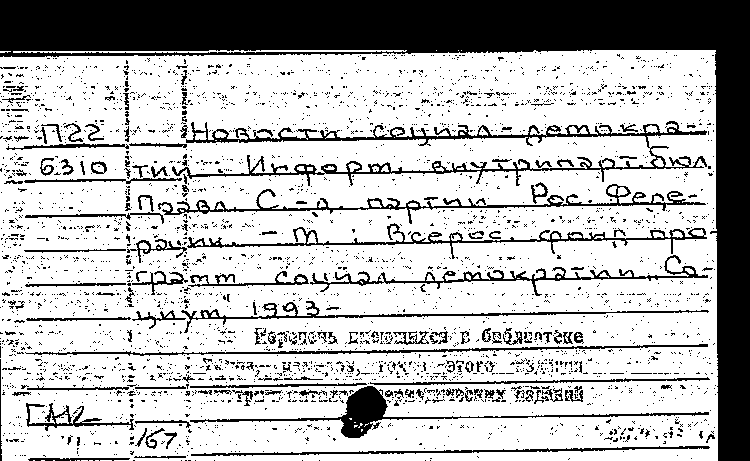 П22 Новости социал-демокра-
6310 тии: Информ. внутрипарт. бюл.
Правл. С.-д. партии Рос. Феде-
рации. – М.: Всерос. фонд про-
грамм социал. демократии „Со-
циум", 1993–
Перечень имеющихся в библиотеке
номеров, годов этого издания
периодических изданий
167